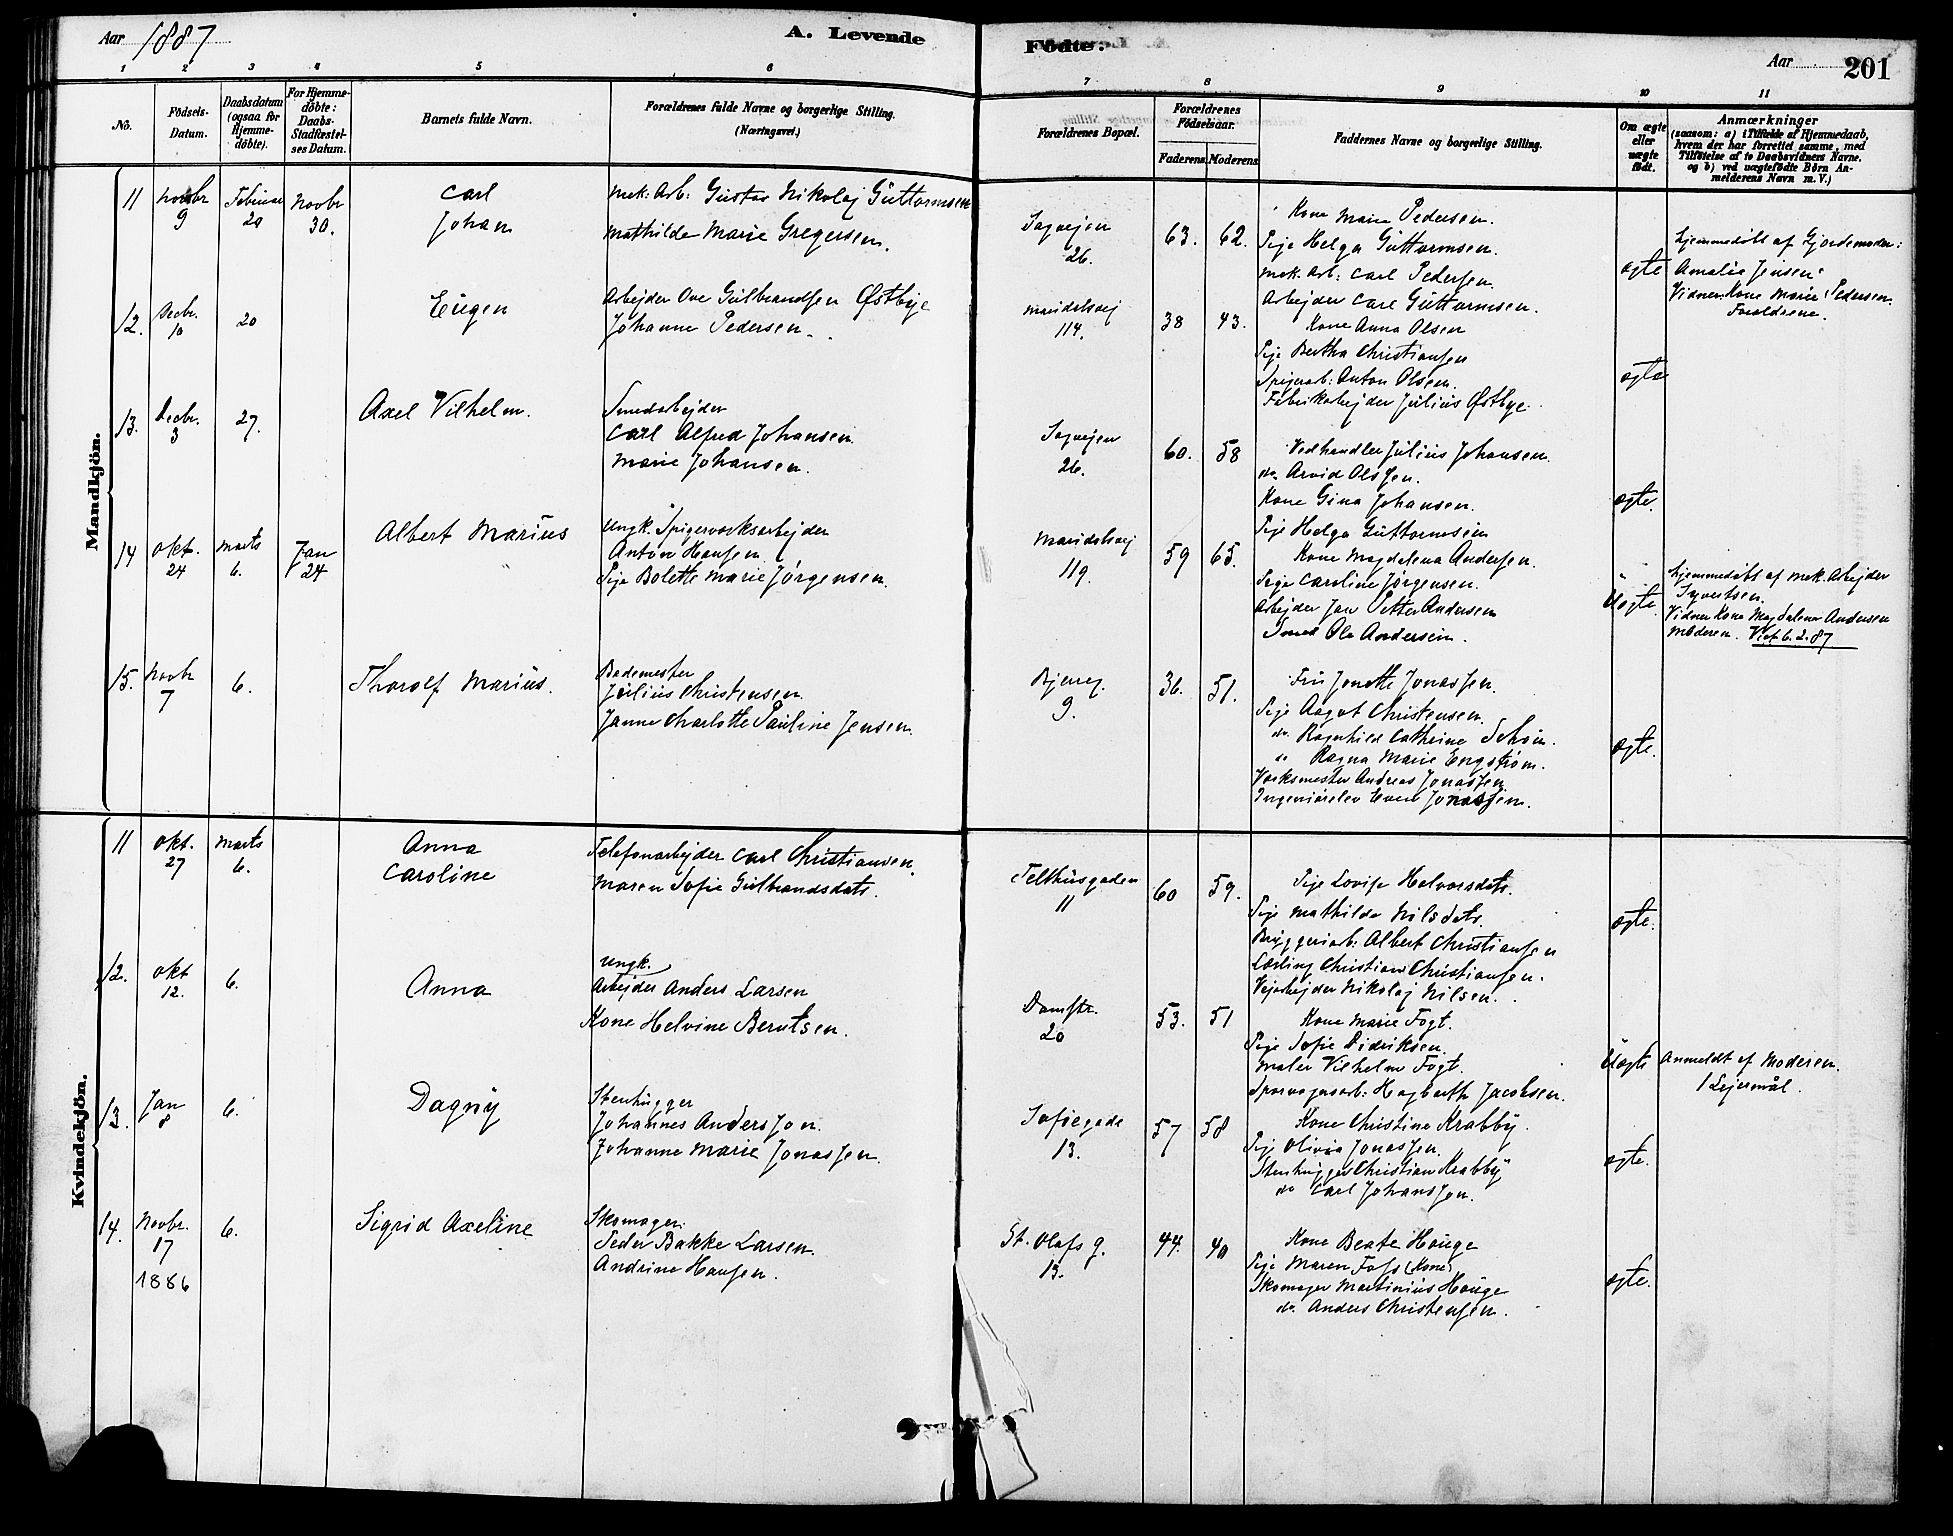 Aar 1887
A. Levende
Fødte.
Aar
201
1
2
3
4
5
6
7
8
9
10
11
No.
Fødsels-
Datum.
Daabsdatum
(ogsaa for
Hjemme-
døbte).
For Hjemme-
døbte:
Daabs-
Stadfæstel-
ses Datum.
Barnets fulde Navn.
Forældrenes fulde Navne og borgerlige Stilling.
(Næringsvei.)
Forældrenes Bopæl.
Forældrenes
Fødselsaar.
Faderens.
Moderens.
Faddernes Navne og borgerlige Stilling.
Om ægte
eller
uægte
født.
Anmærkninger
(saasom: a) i Tilfælde af Hjemmedaab,
hvem der har forrettet samme, med
Tilføielse af to Daabsvidners Navne.
og b) ved uægtefødte Børn An-
melderens Navn m. V.)
Mandkjøn.
11
Novbr
9
Februar
20
Novbr
30.
Carl
Johan
Mek: Arb: Gustav Nikolaj Guttormsen
Mathilde Marie Gregersen.
Sagvejen
26.
63.
62.
Kone Marie Pedersen.
Pige Helga Guttormsen.
Mek: Arb: Carl Pedersen.
Arbejder Carl Guttormsen.
ægte
Hjemmedøbt af Gjordemoder:
Amalie Jensen.
Vidner: Kone Marie Pedersen.
Forældrene.
12.
Decbr.
10
20
Eugen
Arbejder Ove Gulbrandsen Østbye
Johanne Pedersen.
Maridalsvej
114.
38
43.
Kone Anna Olsen
Pige Bertha Christiansen
Spigerarb: Anton Olsen.
Fabrikarbejder Julius Østbye.
ægte
13.
Decbr.
3
27.
Axel Vilhelm.
Smedarbejder
Carl Alfred Johansen.
Marie Johansen.
Sagvejen
26.
60.
58
Vedhandler Julius Johansen.
do. Arvid Olssen.
Kone Gina Johansen.
Pige Helga Guttormsen
ægte.
14
Okt.
24
Marts
6.
Jan
24
Albert Marius
Ungk. Spigerverksarbejder
Anton Hansen
Pige Bolette Marie Jørgensen.
Maridalsvej
119.
59
65.
Kone Magdalena Andersen.
Pige Caroline Jørgensen.
Arbejder Jan Petter Andersen
Smed Ole Andersen.
Uægte.
Hjemmedøbt af Mek. Arbejder
Syvertsen.
Vidner Kone Magdalena Andersen
Moderen. Viet 6. 2. 87
15.
Novbr
7
6.
Thorolf Marius.
Bademester
Julius Christensen
Janna Charlotte Pauline Jensen.
Bjerreg.
9.
36.
51.
Fru Jonette Jonassen.
Pige Aagot Christensen.
do. Ragnhild Cathrine Schøn.
do Ragna Marie Engstrøm.
Værksmester Andreas Jonassen.
Ingeniørelev Even Jonassen.
ægte.
Kvindekjøn.
11
Okt.
27
Marts
6.
Anna
Caroline
Telefonarbejder Carl Christiansen.
Maren Sofie Gulbrandsdatr.
Telthusgaden
11
60
59.
Pige Lovise Halvorsdatr.
Pige Mathilde Nilsdatr.
Bryggeriarb: Albert Christiansen
Lærling Christian Christiansen.
Vejarbejder Nikolaj Nilsen.
ægte.
12.
Okt
12.
6.
Anna
Ungk.
Arbejder Anders Larsen
Kone Helvine Berntsen.
Damstr.
20
53.
51
Kone Marie Fogt.
Pige Sofie Didriksen.
Maler Vilhelm Fogt.
Sporvognsarb: Hagbarth Jacobsen.
Uægte
Anmeldt af Moderen.
1 Lejermål.
13.
Jan
8
6.
Dagny
Stenhugger
Johannes Andersson.
Johanne Marie Jonassen.
Sofiegade
13.
57
58
Kone Christine Krabby.
Pige Olivia Jonassen.
Stenhugger Christian Krabby
do Carl Johansson.
ægte.
14.
Novbr.
17
1886
6.
Sigrid Axeline
Skomager.
Peder Bakke Larsen
Andrine Hansen.
St. Olafs g.
13.
44.
40
Kone Beate Hauge
Pige Maren Foss (Kone)
Skomager Martinius Hauge
do. Anders Christensen.
ægte.